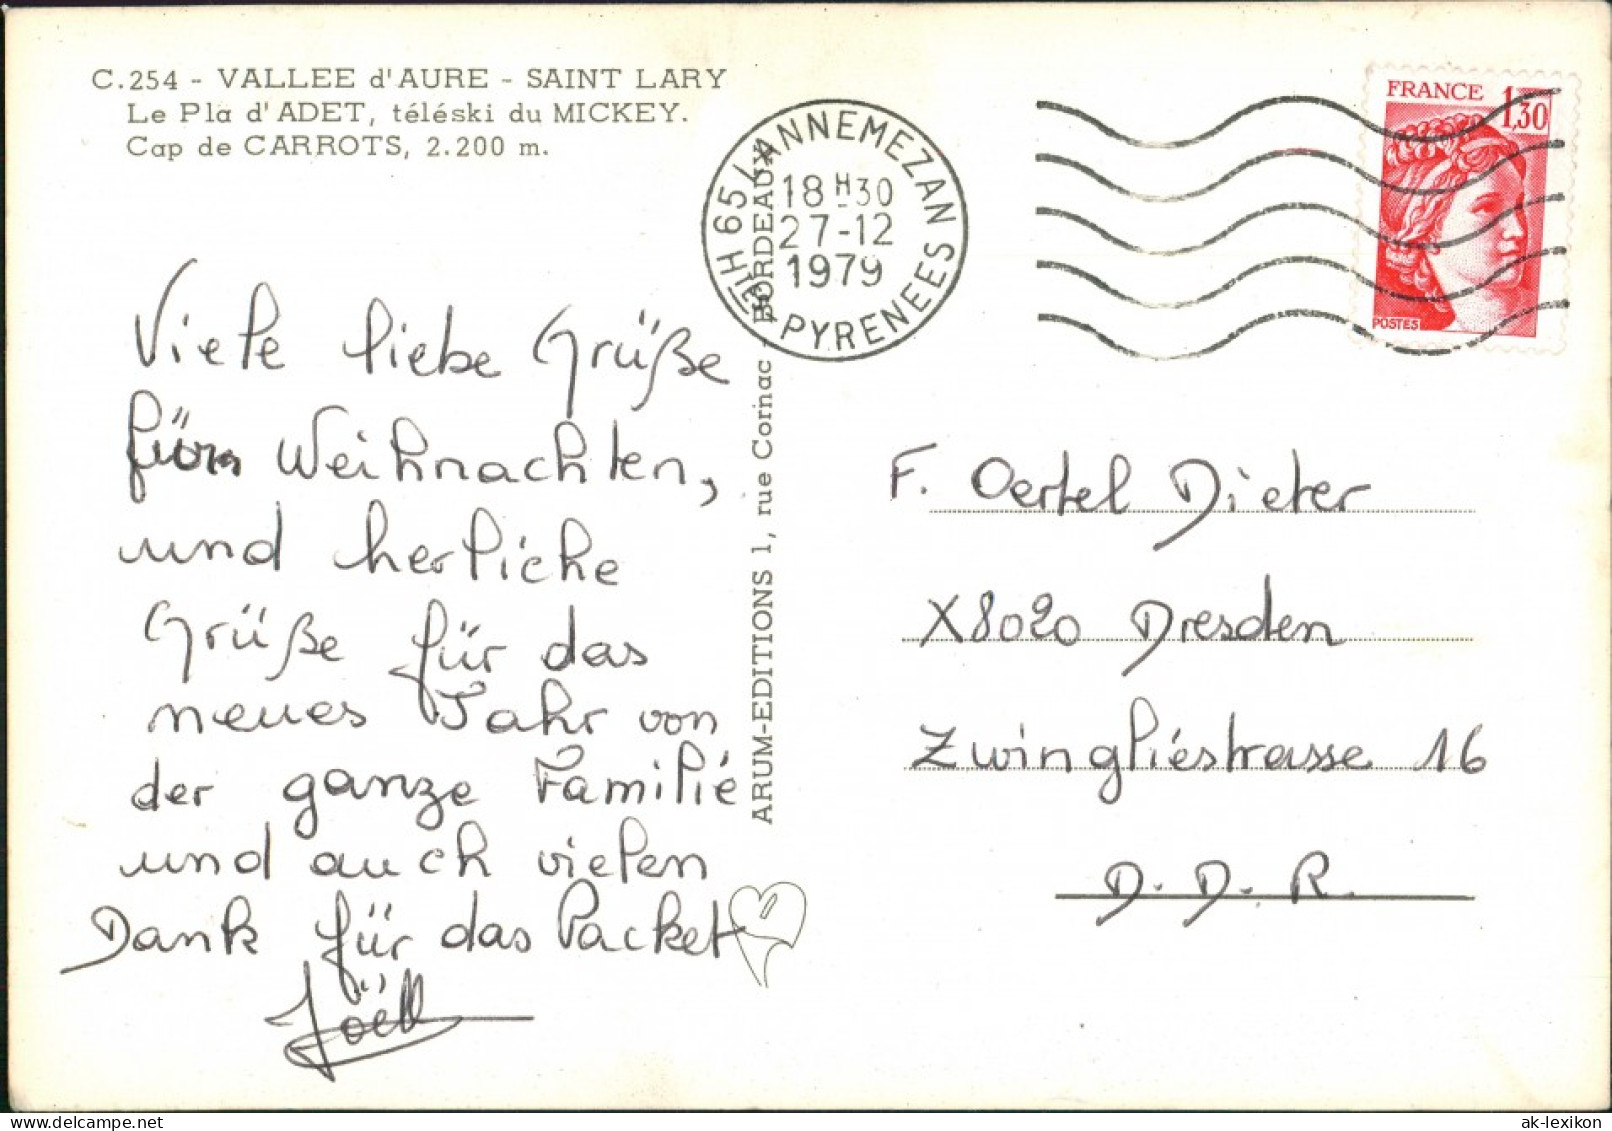 C.254 - VALLEE d'AURE - SAINT LARY
Le Pla d'ADET, téléski du MICKEY.
Cap de CARROTS, 2.200 m.
65 LANNEMEZAN
18 H 30
27-12
1979
HTES PYRENEES
FRANCE
1,30
POSTES
ARUM-EDITIONS 1, rue Cornac - BORDEAUX
Viele liebe Grüße
für Weihnachten,
und herliche
Grüße für das
neues Jahr von
der ganze Familie
und auch vielen
Dank für das Packet
Joëll
F. Oertel Dieter
X8020 Dresden
Zwingliestrasse 16
D.D.R.
delcampe.net
ak-lexikon